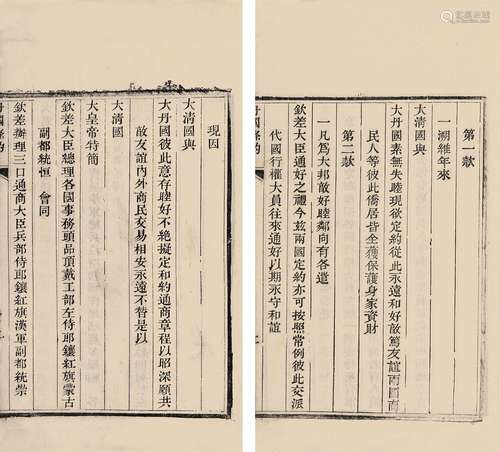 現因
大清國與
大丹國彼此意存睦好不絕擬定和約通商章程以昭深願共
敵友誼內外商民交易相安永遠不替是以
大清國
大皇帝特簡
欽差大臣總理各國事務頭品頂戴工部左侍郎鑲紅旗蒙古
副都統恒 會同
欽差辦理三口通商大臣兵部侍郎鑲紅旗漢軍副都統崇
第一款
一溯維年來
大清國與
大丹國素無失睦現欲定約從此永遠和好敵篤友誼兩國商
民人等彼此僑居皆全獲保護身家資財
第二款
一凡爲大邦敵好睦鄰向有各遣
欽差大臣通好之禮今茲兩國定約亦可按照常例彼此交派
代國行權大員往來通好以期永守和誼